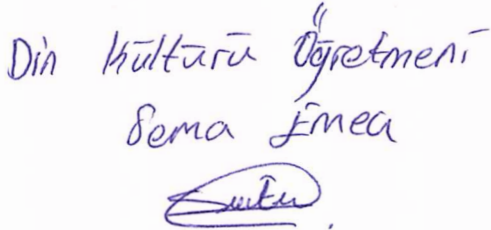 Din Kültürü Öğretmeni
Sema Emea